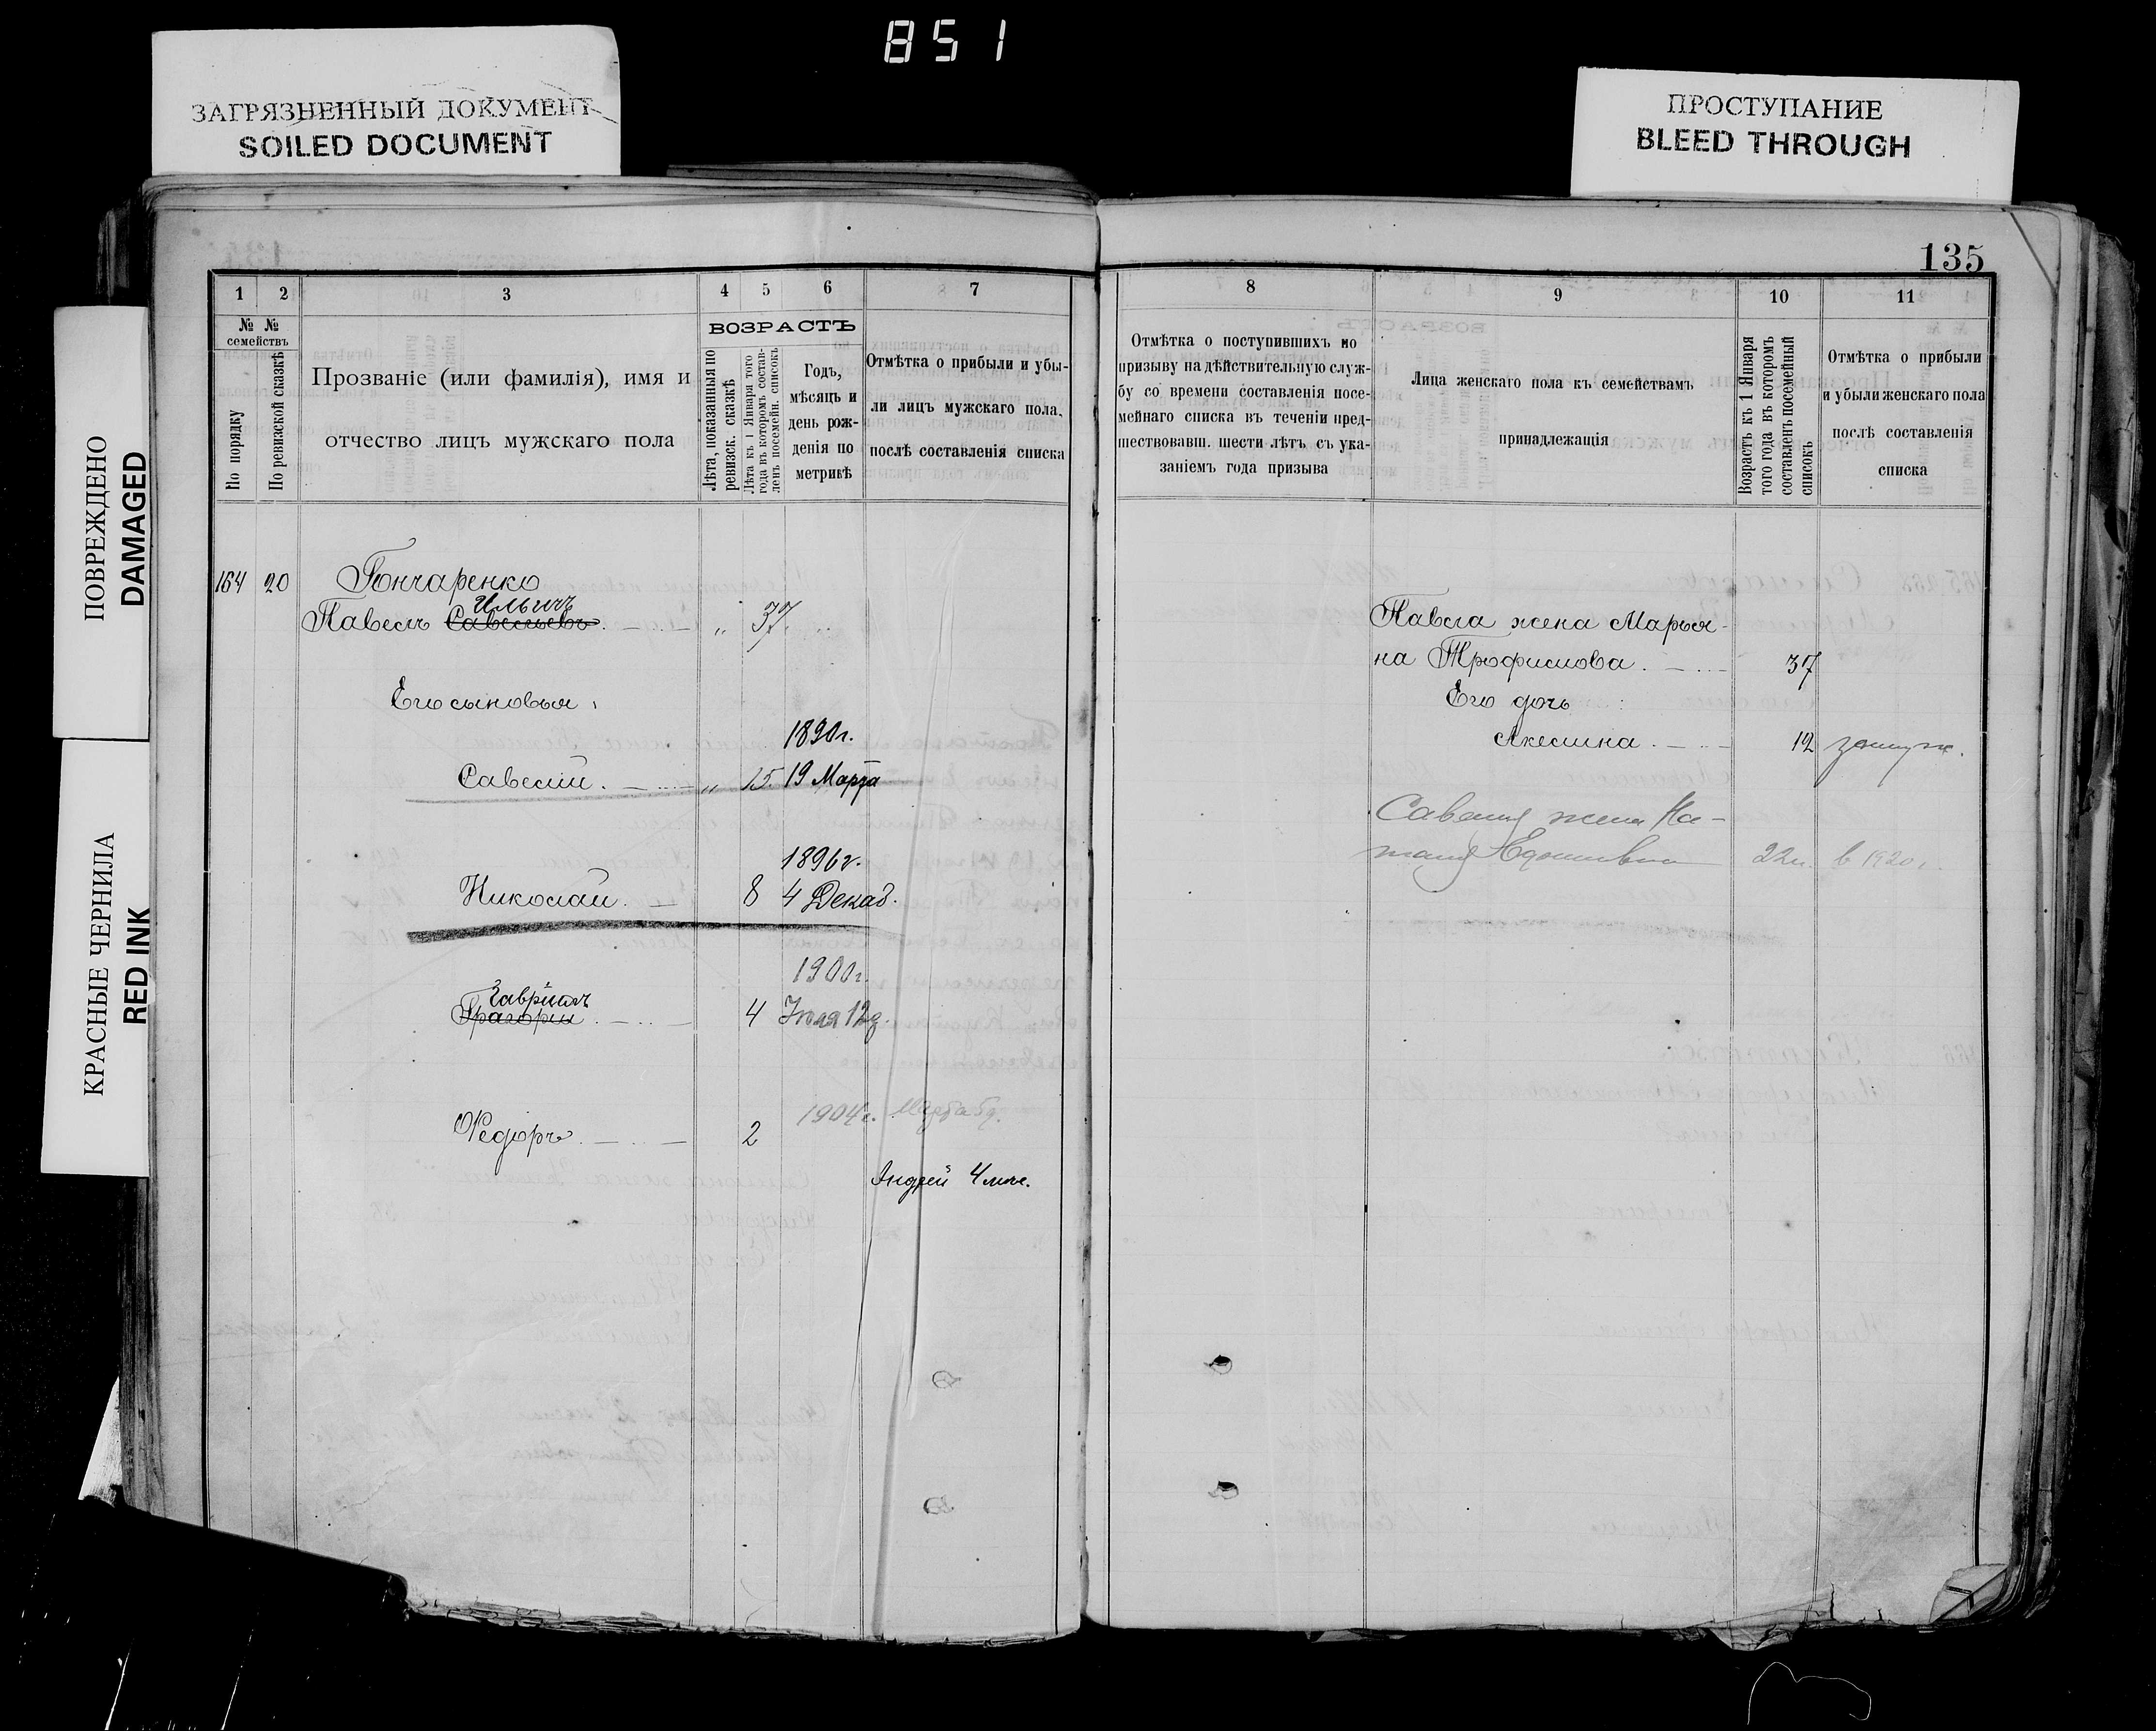 851
ЗАГРЯЗНЕННЫЙ ДОКУМЕНТ
SOILED DOCUMENT
ПРОСТУПАНИЕ
BLEED THROUGH
ПОВРЕЖДЕНО
DAMAGED
КРАСНЫЕ ЧЕРНИЛА
RED INK
135
1 2 3 4 5 6 7
№ № семействъ
По порядку
По ревизской сказкѣ
Прозваніе (или фамилія), имя и
отчество лицъ мужскаго пола
ВОЗРАСТЪ
Лѣта, показанныя по
ревизск. сказкѣ
Лѣта къ 1 Января того
года въ которомъ состав-
ленъ посемейн. списокъ
Годъ,
мѣсяцъ и
день рож-
денія по
метрикѣ
Отмѣтка о прибыли и убы-
ли лицъ мужскаго пола,
послѣ составленія списка
164 20 Гончаренко
Ильичъ
Павелъ Савельевъ „ 37
Его сыновья:
1890г.
Савелій „ 15 19 Марта
1896г.
Николай 8 4 Декаб.
1900г.
Гавріилъ
Григорій 4 Іюля 12д.
1904г.
Федоръ 2
Андрей 4
8 9 10 11
Отмѣтка о поступившихъ по
призыву на дѣйствительную служ-
бу со времени составленія посе-
мейнаго списка въ теченіи пред-
шествовавш. шести лѣтъ съ ука-
заніемъ года призыва
Лица женскаго пола къ семействамъ
принадлежащія
Возрастъ къ 1 Января
того года въ которомъ
составленъ посемейный
списокъ
Отмѣтка о прибыли
и убыли женскаго пола
послѣ составленія
списка
Павла жена Марья-
на Трофимова 37
Его дочь:
Акелина 12 замуж.
Савелия жена На-
22 в 1920г.